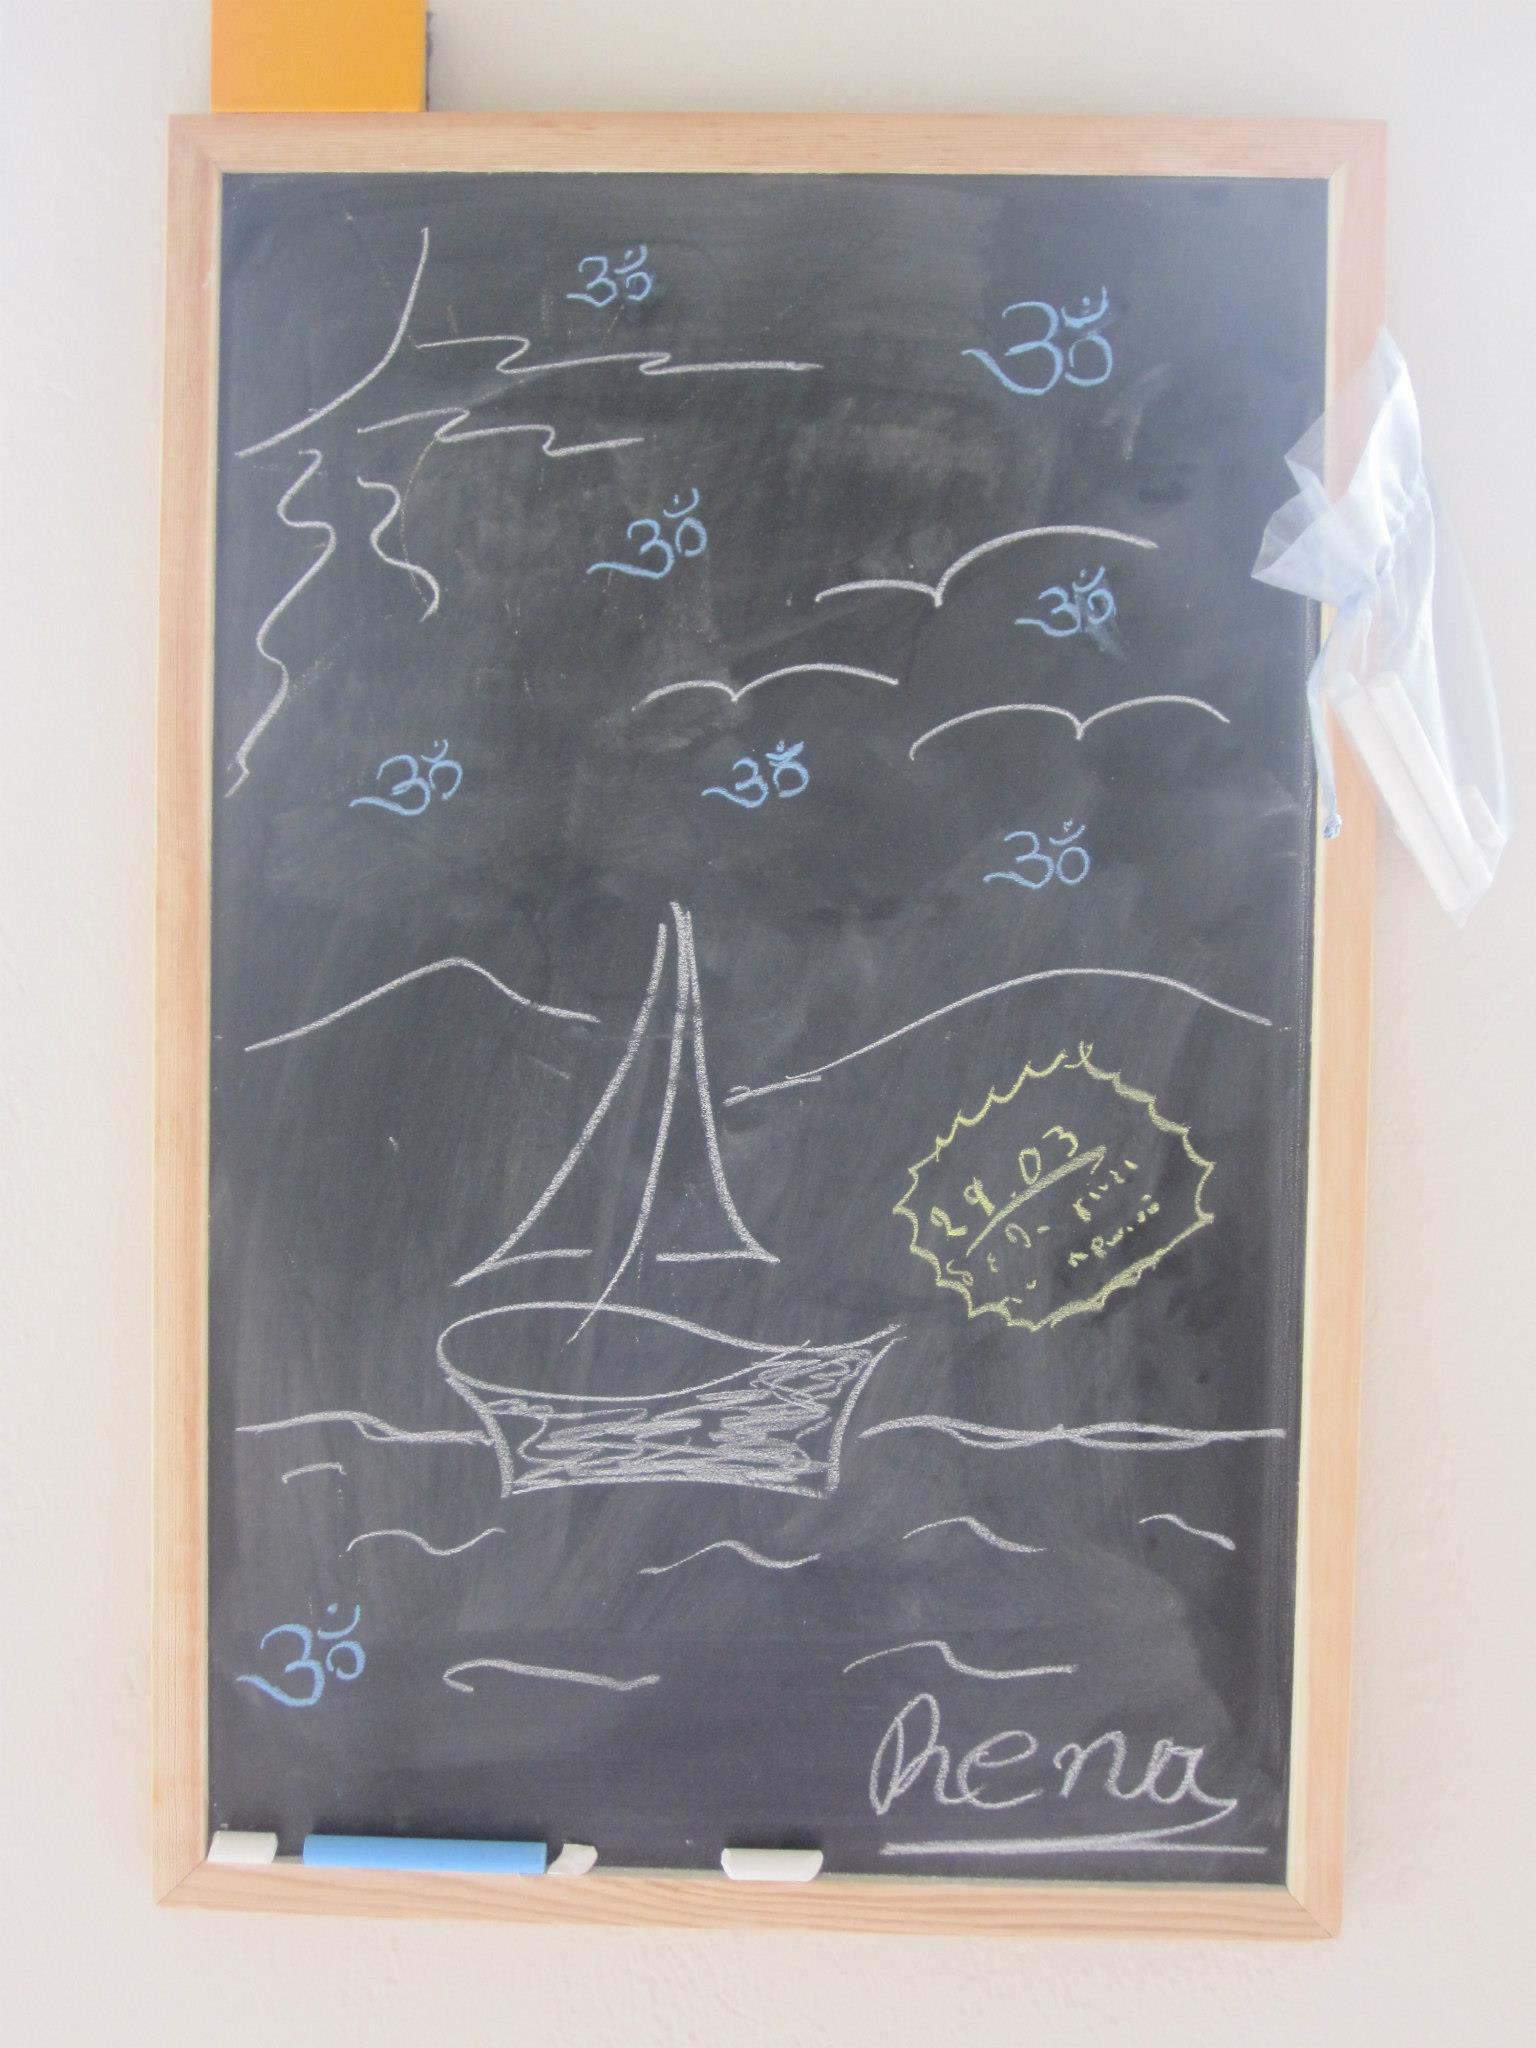 ॐ
ॐ
ॐ
ॐ
ॐ
ॐ
ॐ
29.03
ॐ
Rena